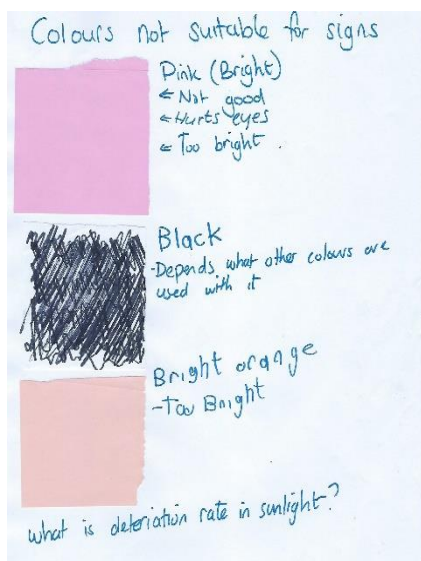 Colours not suitable for signs
Pink (Bright)
← Not good
← Hurts eyes
← Too bright .
Black
-Depends what other colours are
used with it
Bright orange
-Too Bright
what is deteriation rate in sunlight?